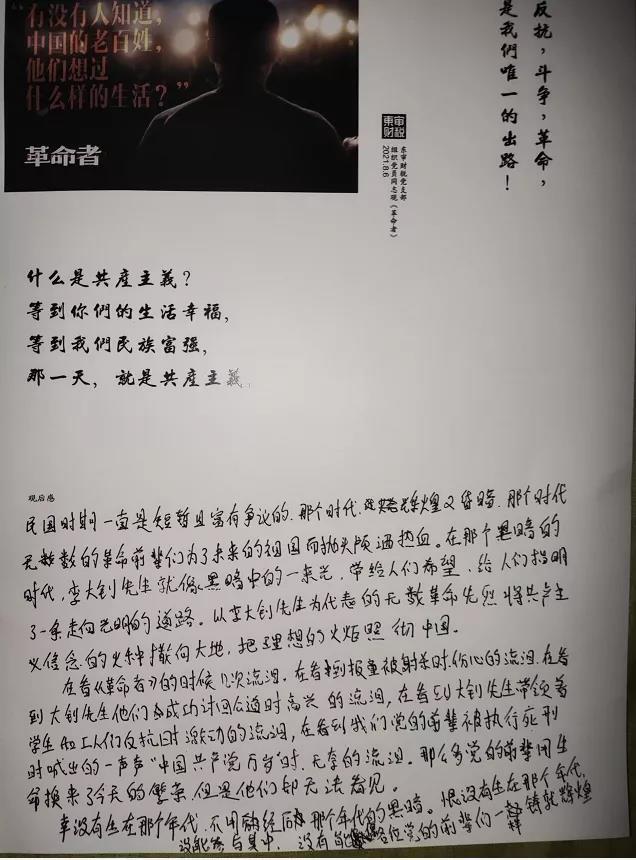 “有没有人知道，
中国的老百姓，
他们想过
什么样的生活？”
革命者
反抗，斗争，革命，
是我們唯一的出路！
東审
财税
东审财税党支部
组织党员同志观《革命者》
2021.8.6
什么是共産主義？
等到你們的生活幸福，
等到我們民族富强，
那一天，就是共産主義。
观后感
民国时期一直是短暂且富有争议的.那个时代.既辉煌又昏暗.那个时代
无数数的革命前辈们为了未来的祖国而抛头颅洒热血。在那个黑暗的
时代,李大钊先生就像黑暗中的一束光,带给人们希望.给人们指明
了一条走向光明的道路。从李大钊先生为代表的无数革命先烈将共产主
义信念的火种撒向大地,把理想的火炬照彻中国.
在看《革命者》的时候几次流泪.在看到报童被射杀时.伤心的流泪.在看
到大钊先生他们成功讨回公道时高兴的流泪,在看到大钊先生带领着
学生和工人们反抗时激动的流泪,在看到我们党的前辈被执行死刑
时喊出的一声声“中国共产党万岁”时.无奈的流泪。那么多党的前辈用生
命换来了今天的繁荣.但是他们却无法看见。
幸没有生在那个年代.不用经历那个年代的黑暗。恨没有生在那个年代.
没能参与其中.没有能各位党的前辈们一样铸就辉煌